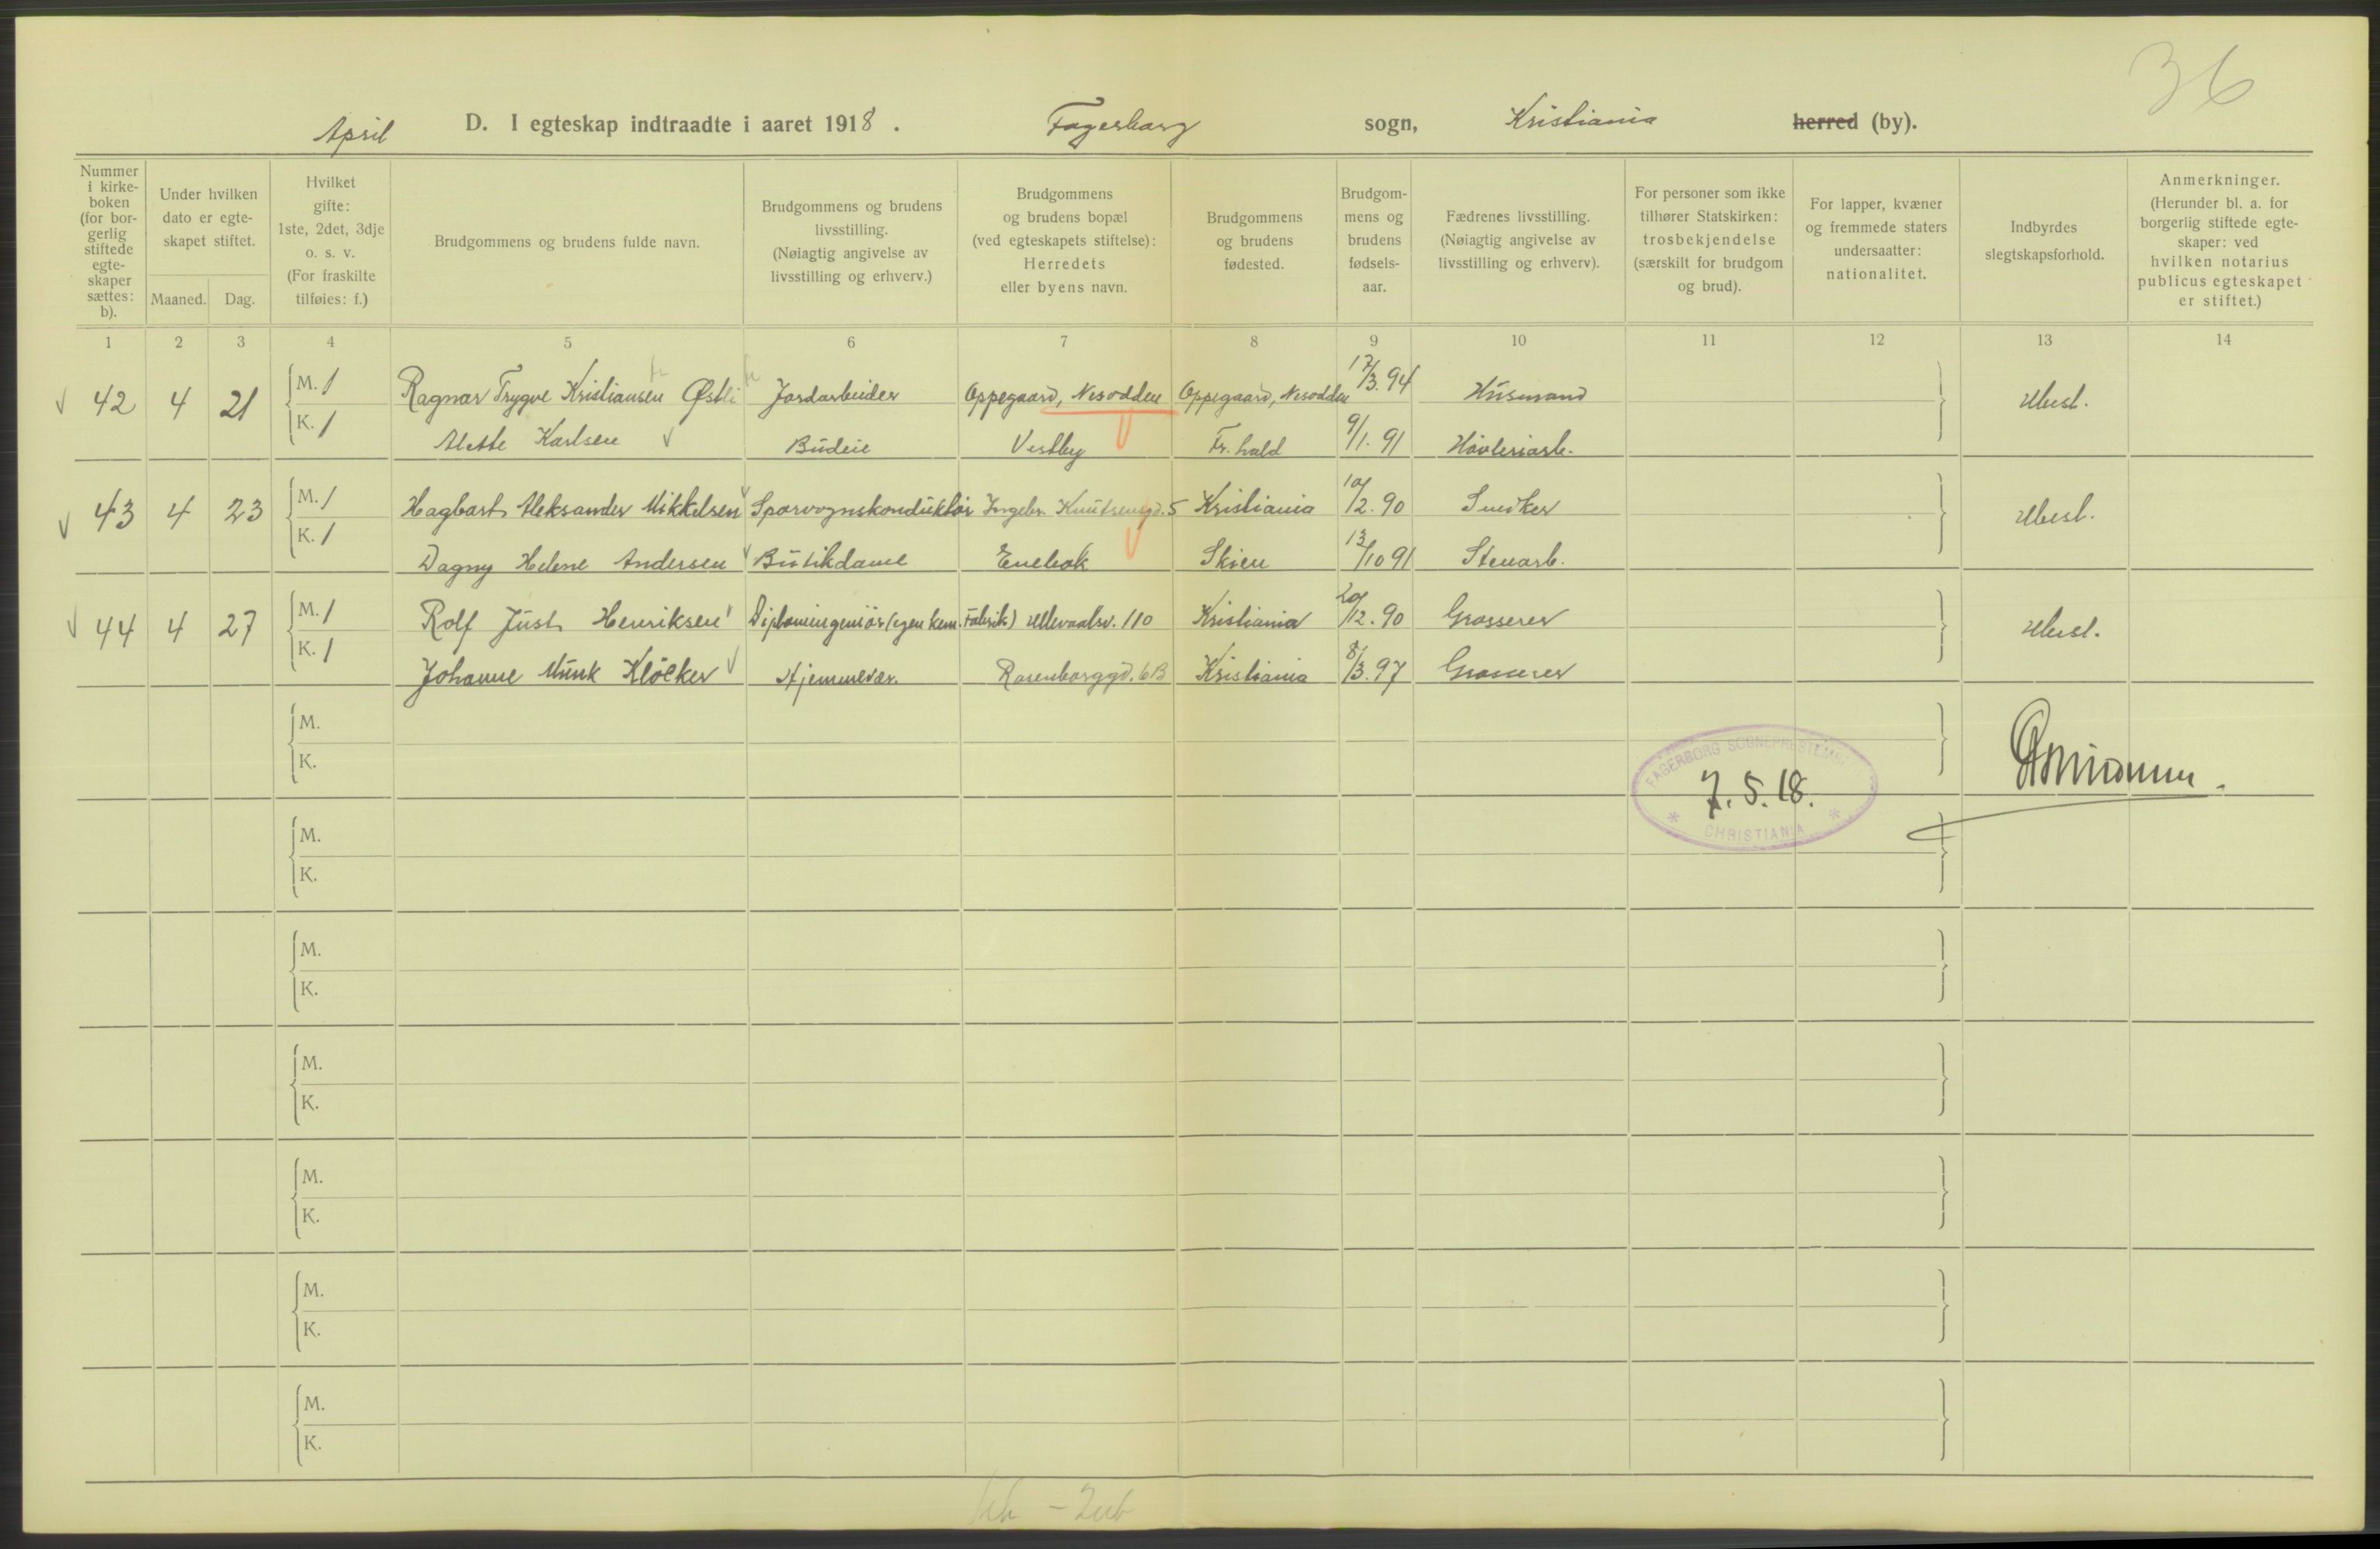 36
April D. I egteskap indtraadte i aaret 1918. Fagerborg sogn, Kristiania herred (by).
Nummer i kirkeboken (for borgerlig stiftede egteskaper sættes: b).
Under hvilken dato er egteskapet stiftet.
Maaned. Dag.
Hvilket gifte: 1ste, 2det, 3dje o. s. v. (For fraskilte tilføies: f.)
Brudgommens og brudens fulde navn.
Brudgommens og brudens livsstilling. (Nøiagtig angivelse av livsstilling og erhverv.)
Brudgommens og brudens bopæl (ved egteskapets stiftelse): Herredets eller byens navn.
Brudgommens og brudens fødested.
Brudgommens og brudens fødselsaar.
Fædrenes livsstilling. (Nøiagtig angivelse av livsstilling og erhverv).
For personer som ikke tilhører Statskirken: trosbekjendelse (særskilt for brudgom og brud).
For lapper, kvæner og fremmede staters undersaatter: nationalitet.
Indbyrdes slegtskapsforhold.
Anmerkninger. (Herunder bl. a. for borgerlig stiftede egteskaper: ved hvilken notarius publicus egteskapet er stiftet.)
1 2 3 4 5 6 7 8 9 10 11 12 13 14
42 4 21 M. 1 Ragnar Trygve Kristiansen Østli Jordarbeider Oppegaard, Nesodden Oppegaard, Nesodden 17/3.94 Husmand Ubesl.
K. 1 Alette Karlsen Budeie Vestby Fr.hald 9/1.91 Høvleriarb.
43 4 23 M. 1 Hagbart Aleksander Mikkelsen Sporvognskonduktør Ingebr. Knutsensgd. 5 Kristiania 10/2.90 Snedker Ubesl.
K. 1 Dagny Helene Andersen Butikdame Enebak Skien 13/10 91 Stenarb.
44 4 27 M. 1 Rolf Just Henriksen Diplomingeniør (egen kem. Fabrik) Ullevaalsv. 110 Kristiania 20/12.90 Grosserer Ubesl.
K. 1 Johanne Munk Kløcker Hjemmevær. Rosenborggd. 6B Kristiania 8/3.97 Grosserer
M.
K.
FAGERBORG SOGNEPRESTEMBEDE
7.5.18.
* CHRISTIANIA *
M.
K.
M.
K.
M.
K.
M.
K.
M.
K.
M.
K.